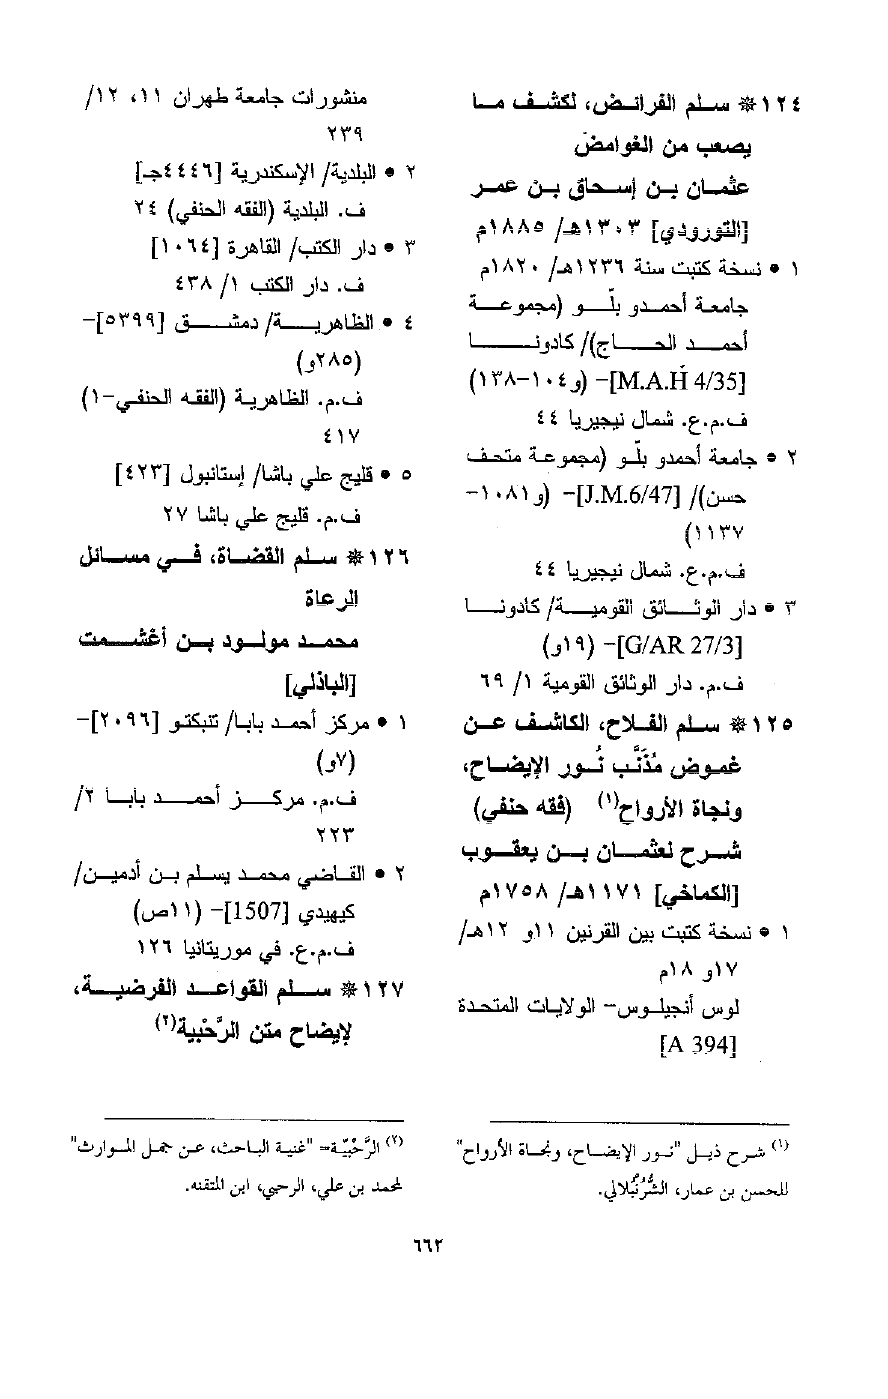 ١٢٤ * سلم الفرائض، لكشف ما
يصعب من الغوامض
عثمان بن إسحاق بن عمر
[التورودي] ١٣٠٣هـ/ ١٨٨٥م
١ • نسخة كتبت سنة ١٢٣٦هـ/ ١٨٢٠م
جامعة أحمدو بلّو (مجموعة
أحمد الحاج)/ كادونا
[M.A.H 4/35]– (و١٠٤-١٣٨)
ف.م.ع. شمال نيجيريا ٤٤
٢ • جامعة أحمدو بلّو (مجموعة متحف
حسن)/ [J.M.6/47]– (و١٠٨١-
١١٣٧)
ف.م.ع. شمال نيجيريا ٤٤
٣ • دار الوثائق القومية/ كادونا
[G/AR 27/3]– (١٩و)
ف.م. دار الوثائق القومية ١/ ٦٩
١٢٥ * سلم الفلاح، الكاشف عن
غموض مُذَنَّب نُور الإيضاح،
ونجاة الأرواح(١) (فقه حنفي)
شرح لعثمان بن يعقوب
[الكماخي] ١١٧١هـ/ ١٧٥٨م
١ • نسخة كتبت بين القرنين ١١و ١٢هـ/
١٧و ١٨م
لوس أنجيلوس– الولايات المتحدة
[A 394]
(١) شرح ذيل "نور الإيضاح، ونجاة الأرواح"
للحسن بن عمار، الشُّرُنْبُلالي.
منشورات جامعة طهران ١١، ١٢/
٢٣٩
٢ • البلدية/ الإسكندرية [٤٤٤٦جـ]
ف. البلدية (الفقه الحنفي) ٢٤
٣ • دار الكتب/ القاهرة [١٠٦٤]
ف. دار الكتب ١/ ٤٣٨
٤ • الظاهرية/ دمشق [٥٣٩٩]–
(٢٨٥و)
ف.م. الظاهرية (الفقه الحنفي-١)
٤١٧
٥ • قليج علي باشا/ إستانبول [٤٢٣]
ف.م. قليج علي باشا ٢٧
١٢٦ * سلم القضاة، في مسائل
الرعاة
محمد مولود بن أغشمت
[الباذلي]
١ • مركز أحمد بابا/ تنبكتو [٢٠٩٦]–
(٧و)
ف.م. مركز أحمد بابا ٢/
٢٢٣
٢ • القاضي محمد يسلم بن أدمين/
كيهيدي [1507]– (١١ص)
ف.م.ع. في موريتانيا ١٢٦
١٢٧ * سلم القواعد الفرضية،
لإيضاح متن الرَّحْبية(٢)
(٢) الرَّحْبِيّة= "غنية الباحث، عن جمل الموارث"
لمحمد بن علي، الرحبي، ابن المتقنه.
٦٦٢